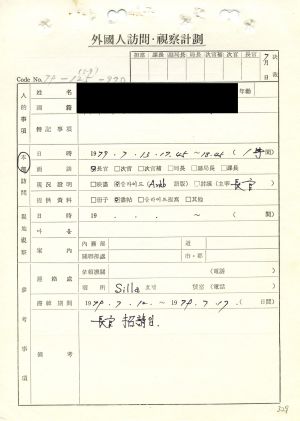 外國人訪問·視察計劃
担當 課長 局長 次官補 次官 長官
決裁
7月 日
Code No.
人的事項
姓名
年齡
國籍
特記事項
本部訪問
日時 1979. 7. 13. 17:45 ~ 18:45 (1時間)
面談 長官 □次官 □次官補 □局長 □課長
現況說明 □映畫 슬라이드 (Arab 語版) □討議 (主宰 長官)
提供資料 □冊子 畫帖 □슬라이드 □其他
現地視察
日時 19 . . . ~ . (間)
案內 內務部 道
市·郡
參考事項
連絡處 依賴機關 (電話 )
宿所 Silla 호텔 號室 (電話 )
滯韓期間 1979. 7. 12. ~ 1979. 7. 17. ( 日間)
備考
長官 招請日.
329